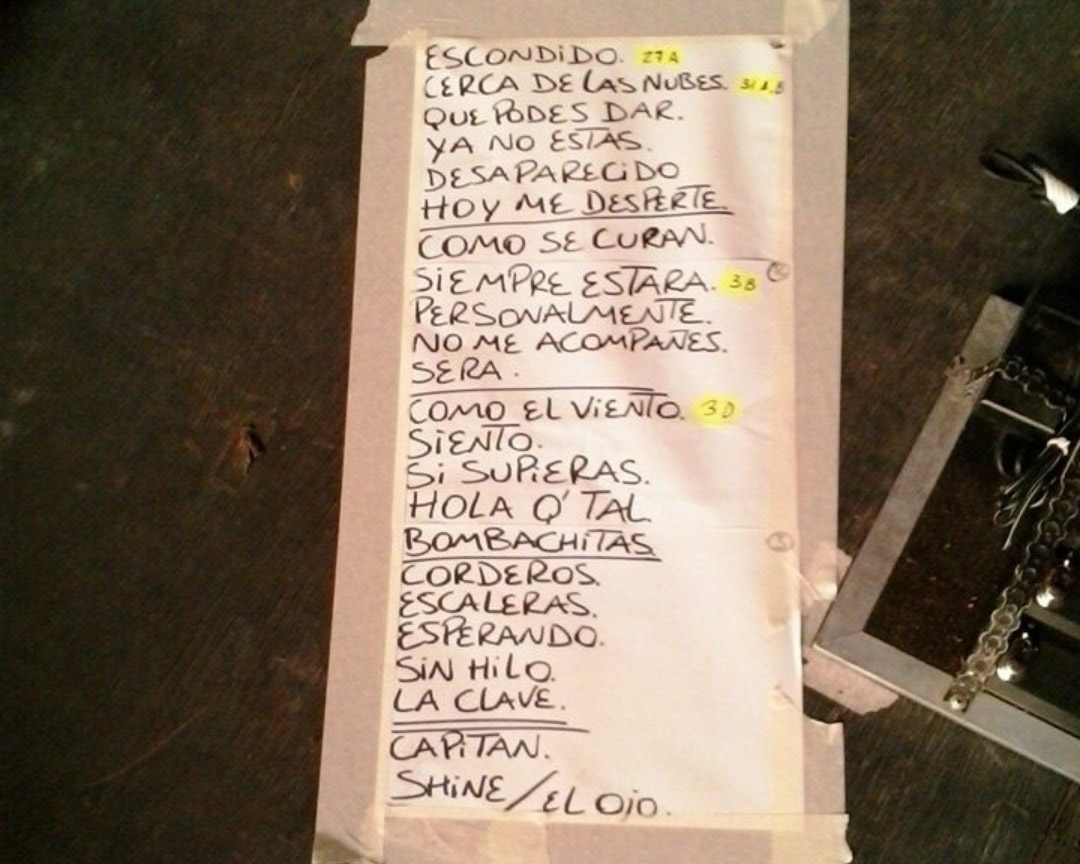 ESCONDIDO. 27A
CERCA DE LAS NUBES. 31A,B
QUE PODES DAR.
YA NO ESTAS.
DESAPARECIDO
HOY ME DESPERTE.
COMO SE CURAN.
SIEMPRE ESTARA. 3B
PERSONALMENTE.
NO ME ACOMPAÑES.
SERA.
COMO EL VIENTO. 3D
SIENTO.
SI SUPIERAS.
HOLA Q' TAL
BOMBACHITAS.
CORDEROS.
ESCALERAS.
ESPERANDO.
SIN HILO.
LA CLAVE.
CAPITAN.
SHINE/EL OJO.